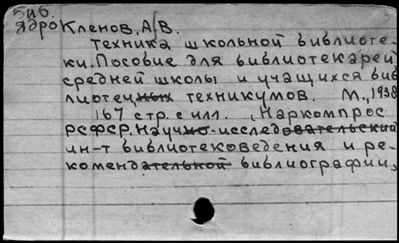 Биб.
ядро Кленов, А.В.
Техника школьной библиоте-
ки. Пособие для библиотекарей
средней школы и учащихся биб
лиотечных техникумов. М., 1938
167 стр. с илл. (Наркомпрос
РСФСР. Научно-исследовательский
ин-т библиотековедения и ре-
комендательной библиографии,